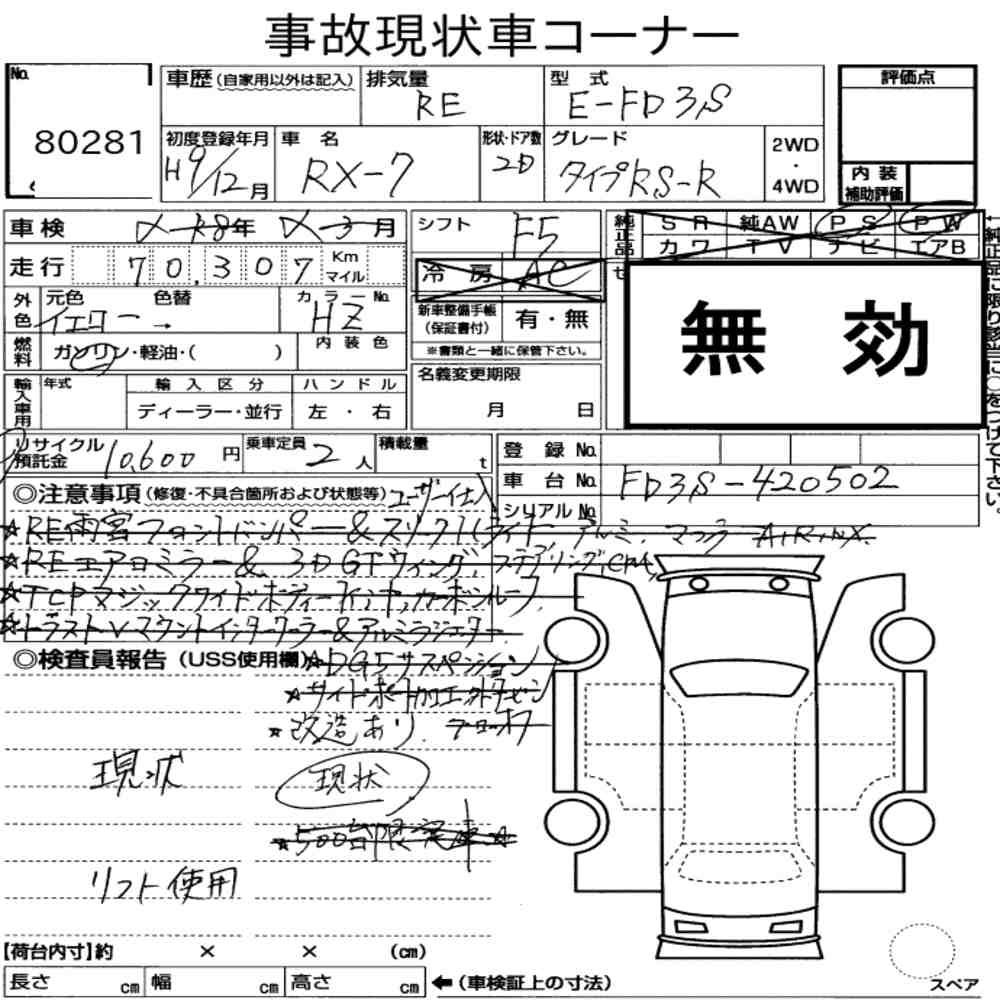 事故現状車コーナー
No.
80281
車歴（自家用以外は記入）
排気量 RE
型式 E-FD3S
評価点
初度登録年月 H9/12月
車名 RX-7
形状・ドア数 2D
グレード タイプRS-R
2WD・4WD
内装補助評価
車検 年 月
シフト F5
純正品 SR 純AW PS PW
カワ TV ナビ エアB
走行 70,307 Km マイル
冷房 AC
外色 元色 イエロー→ 色替
カラーNo. HZ
新車整備手帳（保証書付） 有・無
※書類と一緒に保管下さい。
無効
燃料 ガソリン・軽油・（ ）
内装色
輸入車用 年式 輸入区分 ディーラー・並行
ハンドル 左・右
名義変更期限 月 日
リサイクル預託金 10,600円
乗車定員 2人
積載量 t
登録No.
車台No. FD3S-420502
シリアルNo.
◎注意事項（修復・不具合箇所および状態等）ユーザー仕入
★RE雨宮フロントバンパー&スリークライト、アルミ、マフラー
★REエアロミラー& 3D GTウィング,ステアリング
★TCPマジックワイドボディーキット,カーボンルーフ
★トラストVマウントインタークーラー&アルミラジエター
◎検査員報告（USS使用欄）
★DG5サスペンション
★サイドポート
★改造あり
現状
現状
★500台限定車★
リフト使用
【荷台内寸】約 × × （cm）
長さ cm 幅 cm 高さ cm ←（車検証上の寸法）
スペア